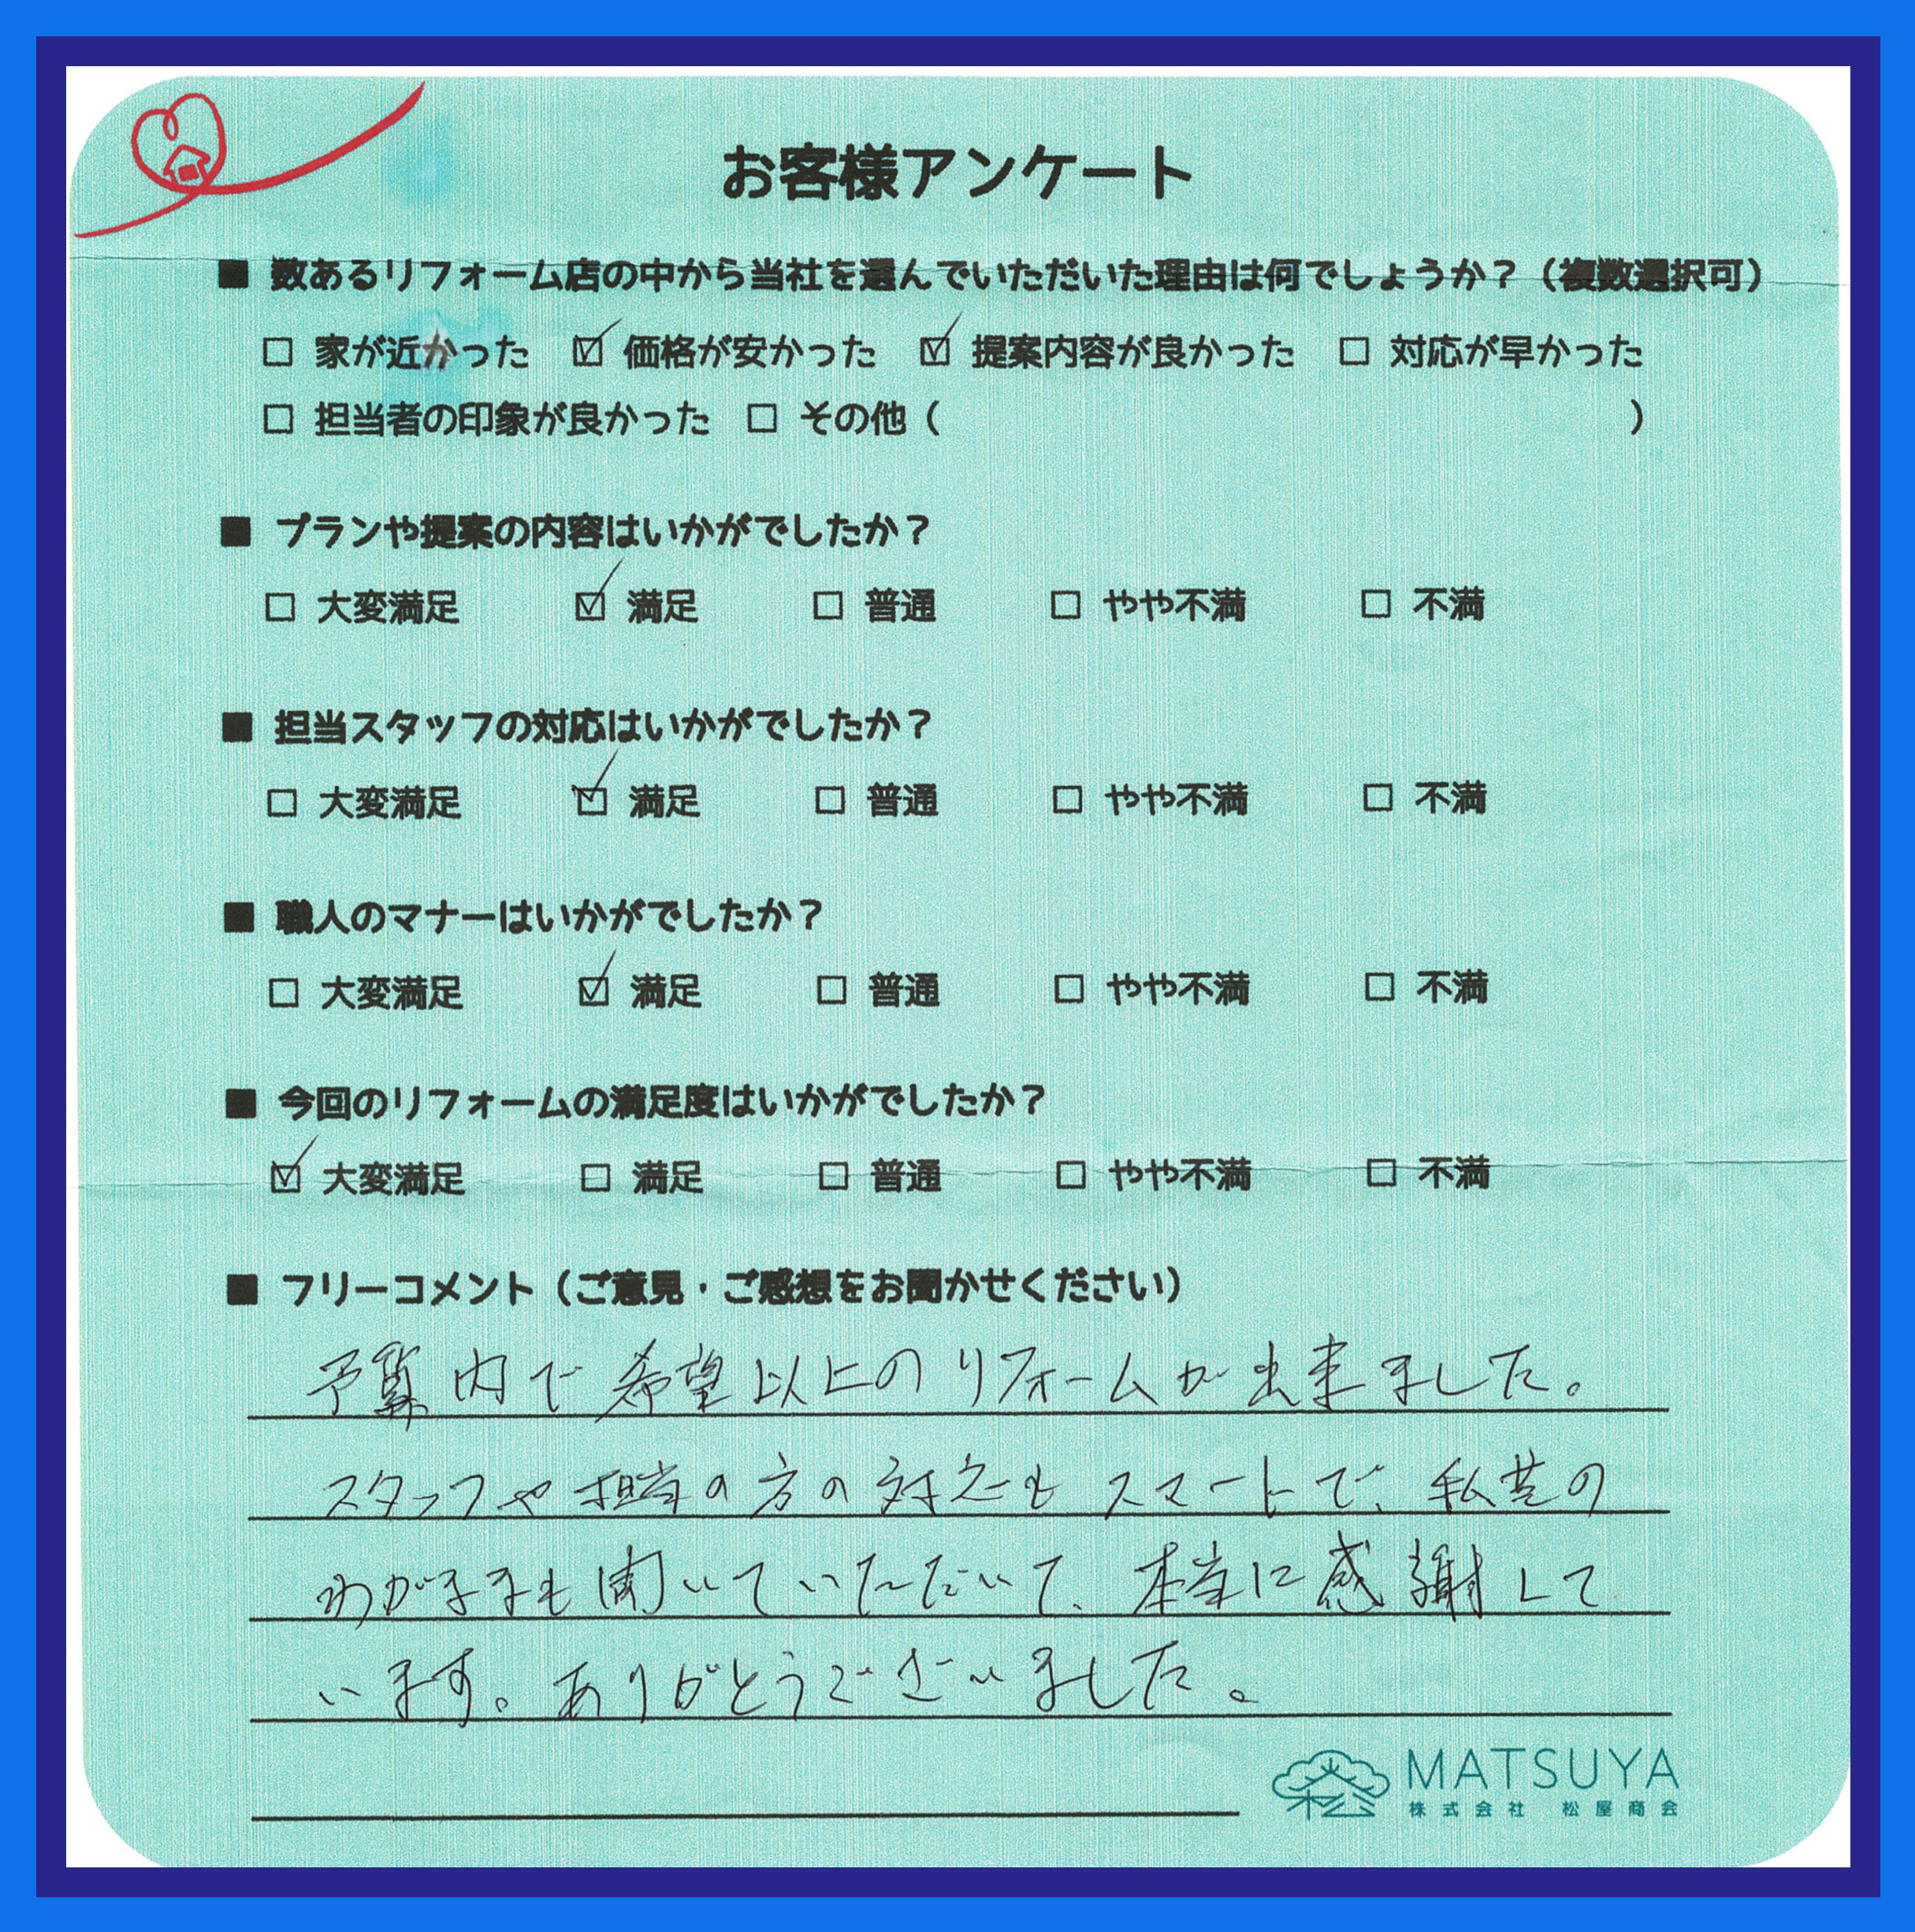 お客様アンケート
■ 数あるリフォーム店の中から当社を選んでいただいた理由は何でしょうか？（複数選択可）
□ 家が近かった ☑ 価格が安かった ☑ 提案内容が良かった □ 対応が早かった
□ 担当者の印象が良かった □ その他（ ）
■ プランや提案の内容はいかがでしたか？
□ 大変満足 ☑ 満足 □ 普通 □ やや不満 □ 不満
■ 担当スタッフの対応はいかがでしたか？
□ 大変満足 ☑ 満足 □ 普通 □ やや不満 □ 不満
■ 職人のマナーはいかがでしたか？
□ 大変満足 ☑ 満足 □ 普通 □ やや不満 □ 不満
■ 今回のリフォームの満足度はいかがでしたか？
☑ 大変満足 □ 満足 □ 普通 □ やや不満 □ 不満
■ フリーコメント（ご意見・ご感想をお聞かせください）
予算内で希望以上のリフォームが出来ました。
スタッフや担当の方の対応もスマートで、私共の
わがままも聞いていただいて、本当に感謝して
います。ありがとうございました。
MATSUYA
株式会社 松屋商会